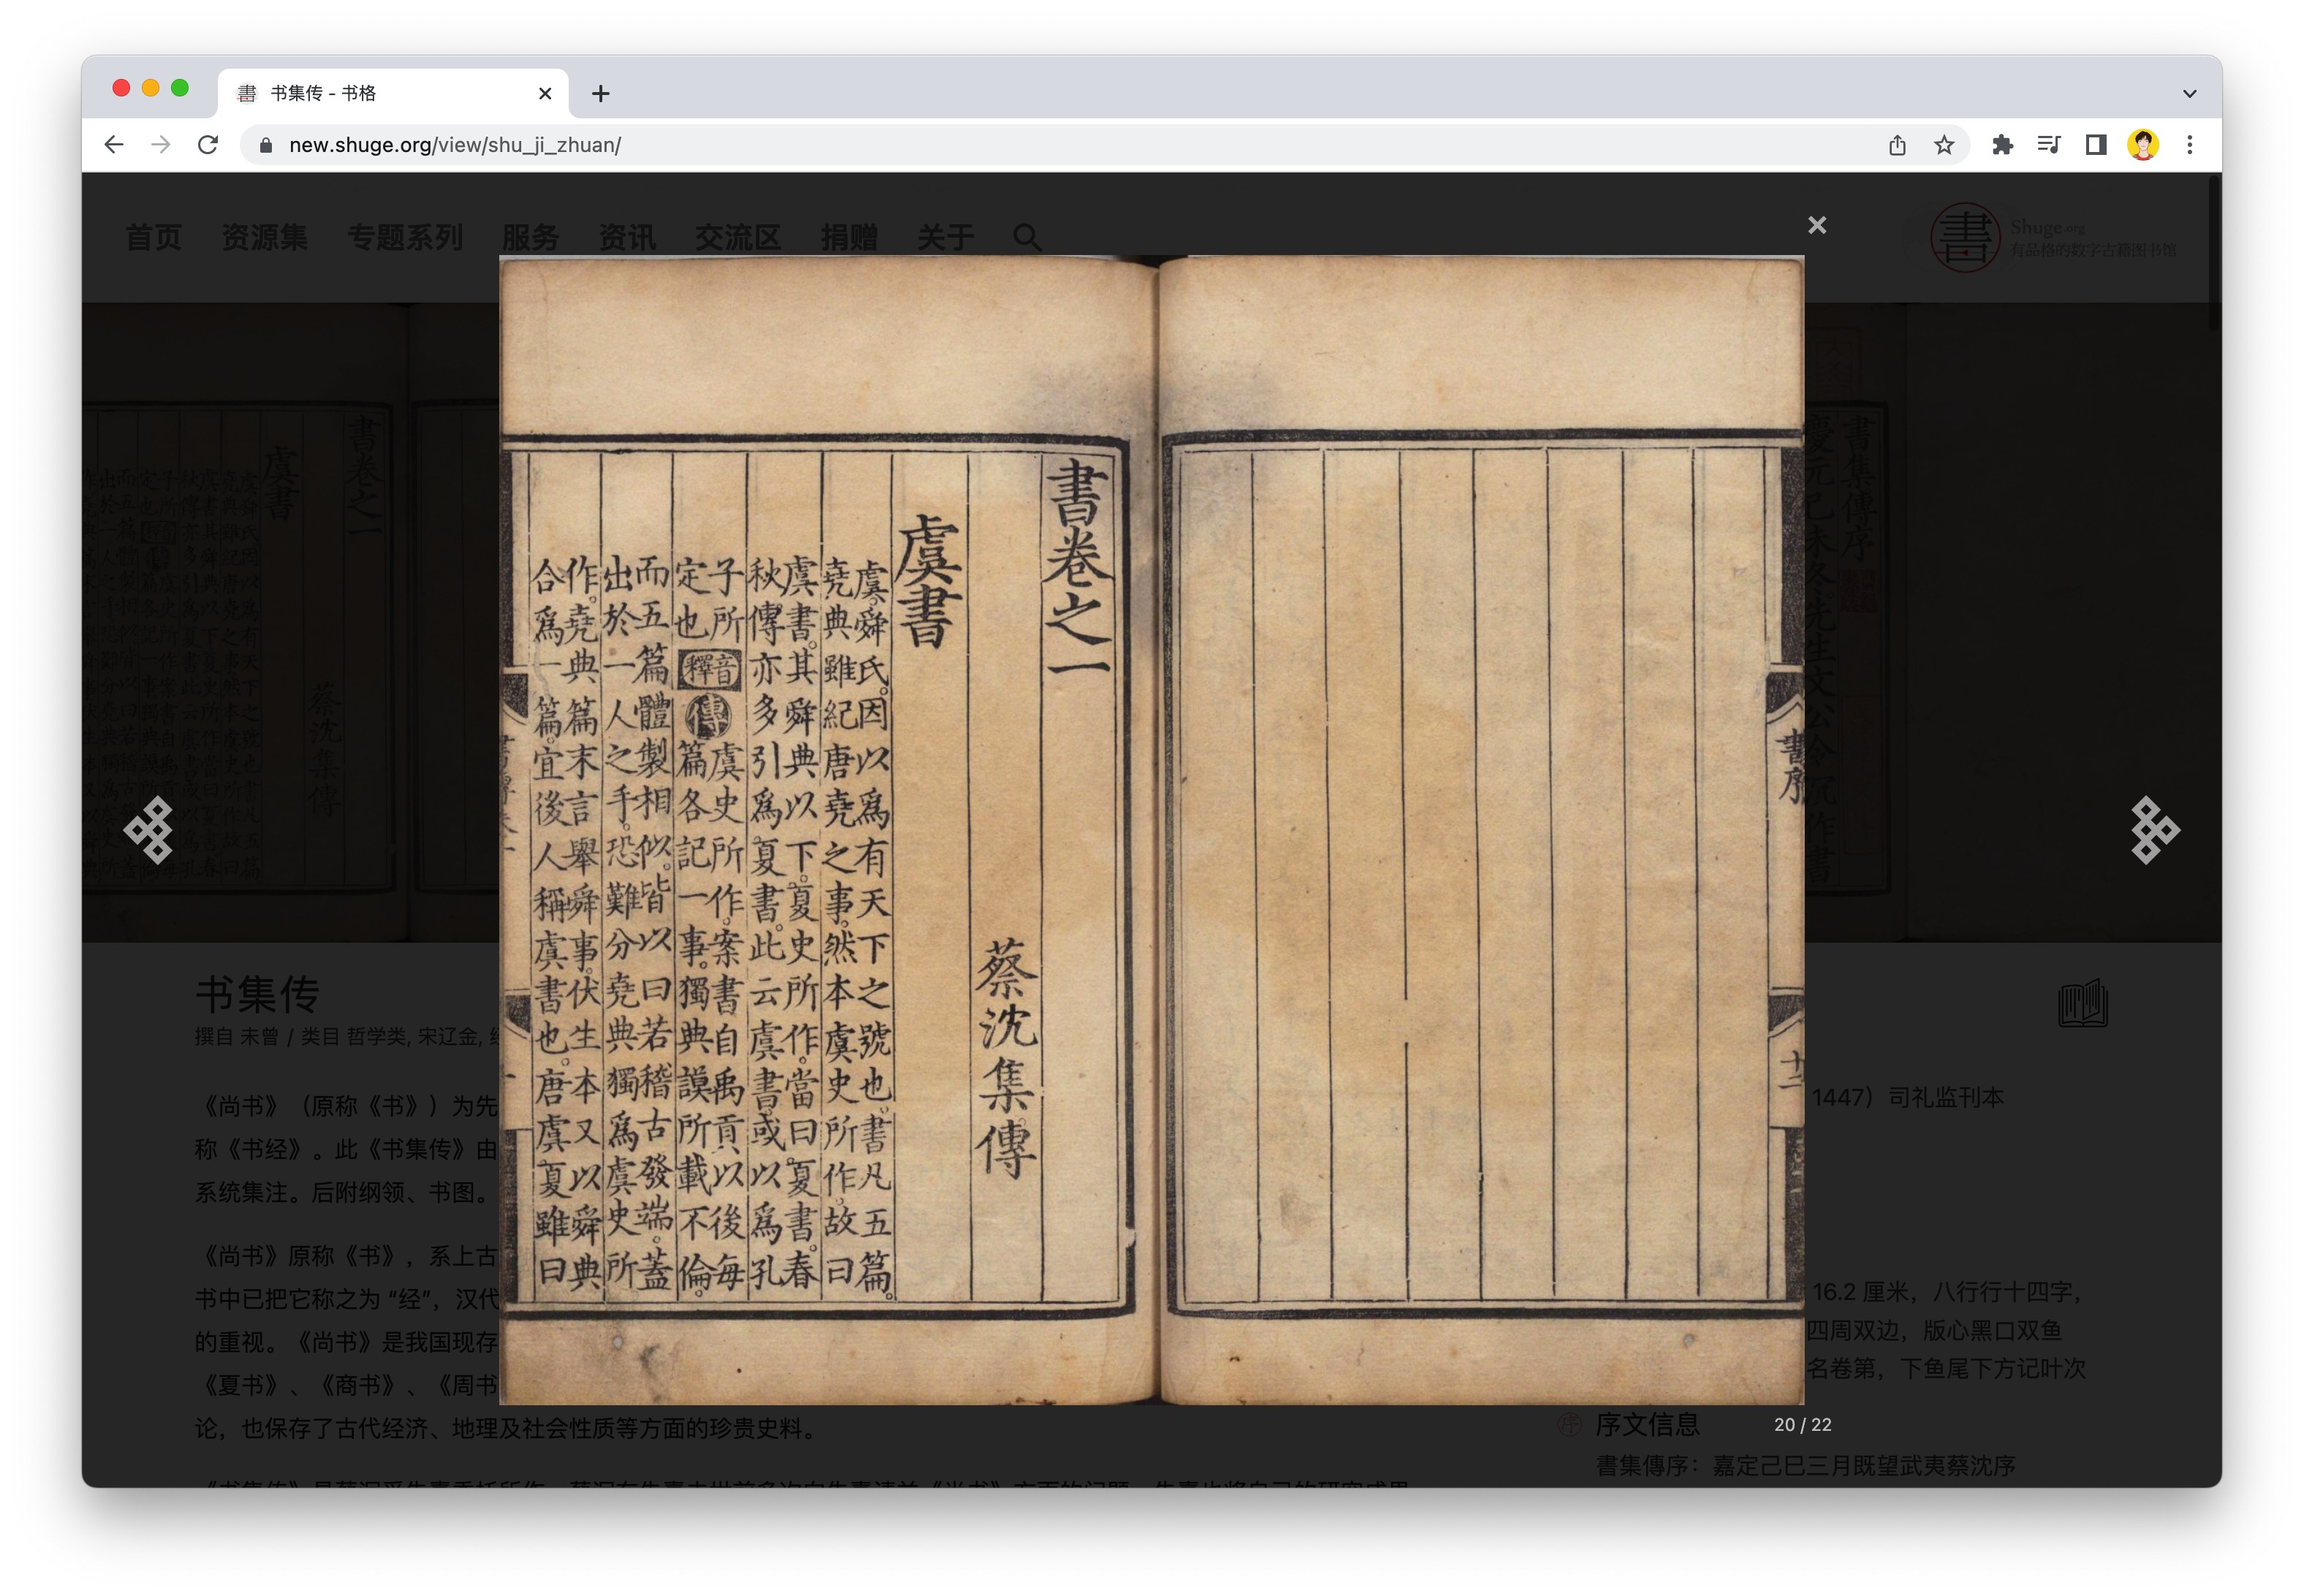 书集传 - 书格
new.shuge.org/view/shu_ji_zhuan/
首页 资源集 专题系列 服务 资讯 交流区 捐赠 关于
書
Shuge.org
有品格的数字古籍图书馆
書序
十二
書卷之一
蔡沈集傳
虞書
虞。舜氏。因以爲有天下之號也。書凡五篇。
堯典雖紀唐堯之事。然本虞史所作。故曰
虞書。其舜典以下。夏史所作。當曰夏書。春
秋傳亦多引爲夏書。此云虞書。或以爲孔
子所
定也
音釋
傳
虞史所作。案書自禹貢以後每
篇各記一事。獨典謨所載不倫。
而五篇體製相似。皆以曰若稽古發端。蓋
出於一人之手。恐難分堯典獨爲虞史所
作。堯典篇末言舉舜事。伏生本又以舜典
合爲一篇。宜後人稱虞書也。唐虞夏雖曰
书集传
撰自 未曾 / 类目 哲学类, 宋辽金,
《尚书》（原称《书》）为先
称《书经》。此《书集传》由
系统集注。后附纲领、书图。
《尚书》原称《书》，系上古
书中已把它称之为 “经”，汉代
的重视。《尚书》是我国现存
《夏书》、《商书》、《周书
论，也保存了古代经济、地理及社会性质等方面的珍贵史料。
1447）司礼监刊本
16.2 厘米，八行行十四字，
四周双边，版心黑口双鱼
名卷第，下鱼尾下方记叶次
序文信息
書集傳序：嘉定己巳三月既望武夷蔡沈序
20 / 22